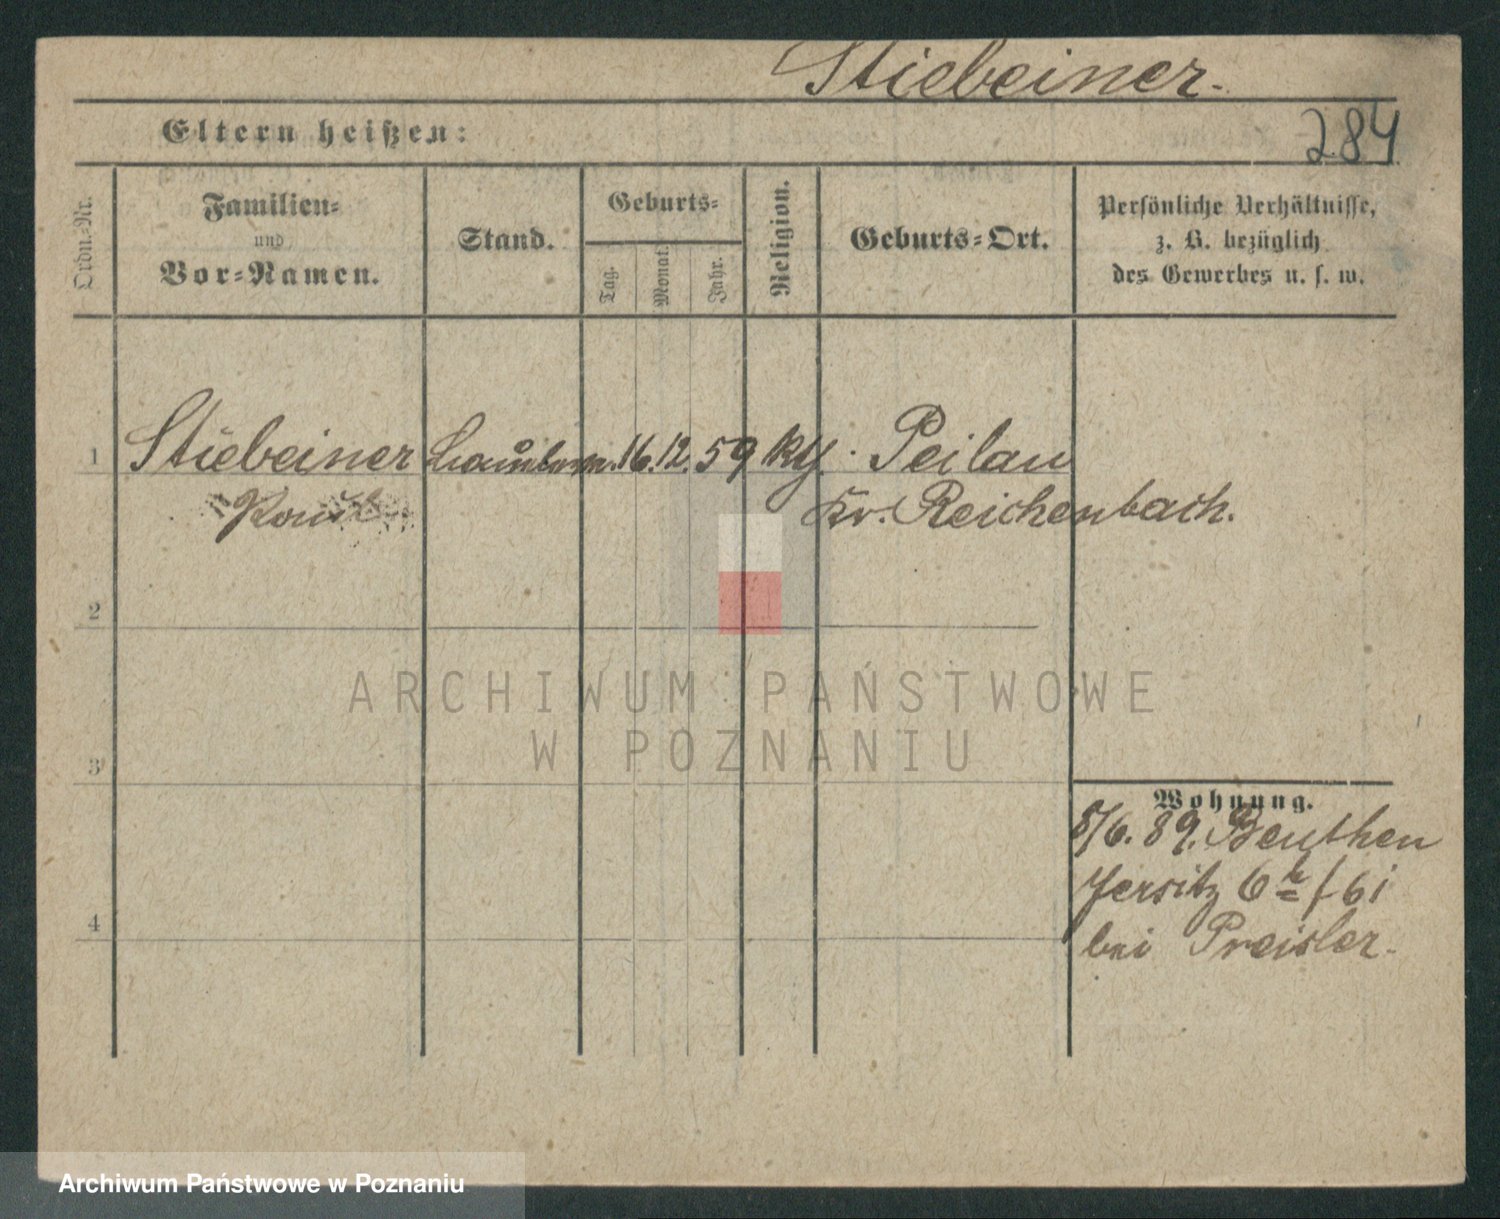 Stiebeiner.
284
Eltern heißen:
Ordn.-Nr.
Familien-
und
Vor-Namen.
Stand.
Geburts-
Tag.
Monat.
Jahr.
Religion.
Geburts-Ort.
Persönliche Verhältnisse,
z. B. bezüglich
des Gewerbes u. s. w.
1 Stiebeiner 16. 12. 59 Peilau
Kr. Reichenbach.
2
ARCHIWUM PAŃSTWOWE
W POZNANIU
3
Wohnung.
8/6. 89. Beuthen
Jersitz
4
bei Preisler.
Archiwum Państwowe w Poznaniu